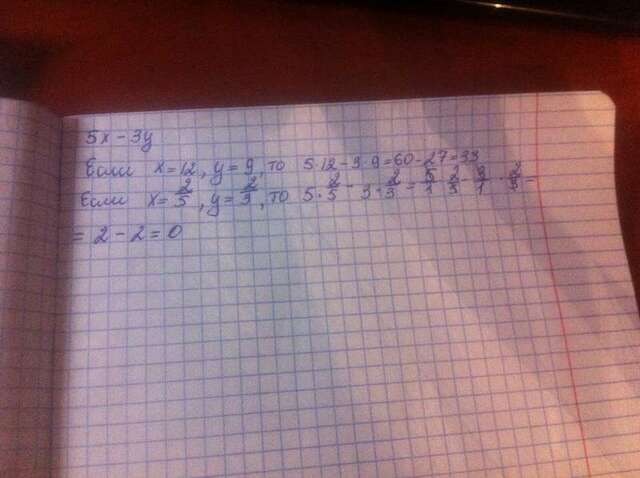 5x - 3y
Если x = 12, y = 9, то 5·12 - 3·9 = 60 - 27 = 33
Если x = 2/5, y = 2/3, то 5·2/5 - 3·2/3 = 5/1·2/5 - 3/1·2/3 =
= 2 - 2 = 0